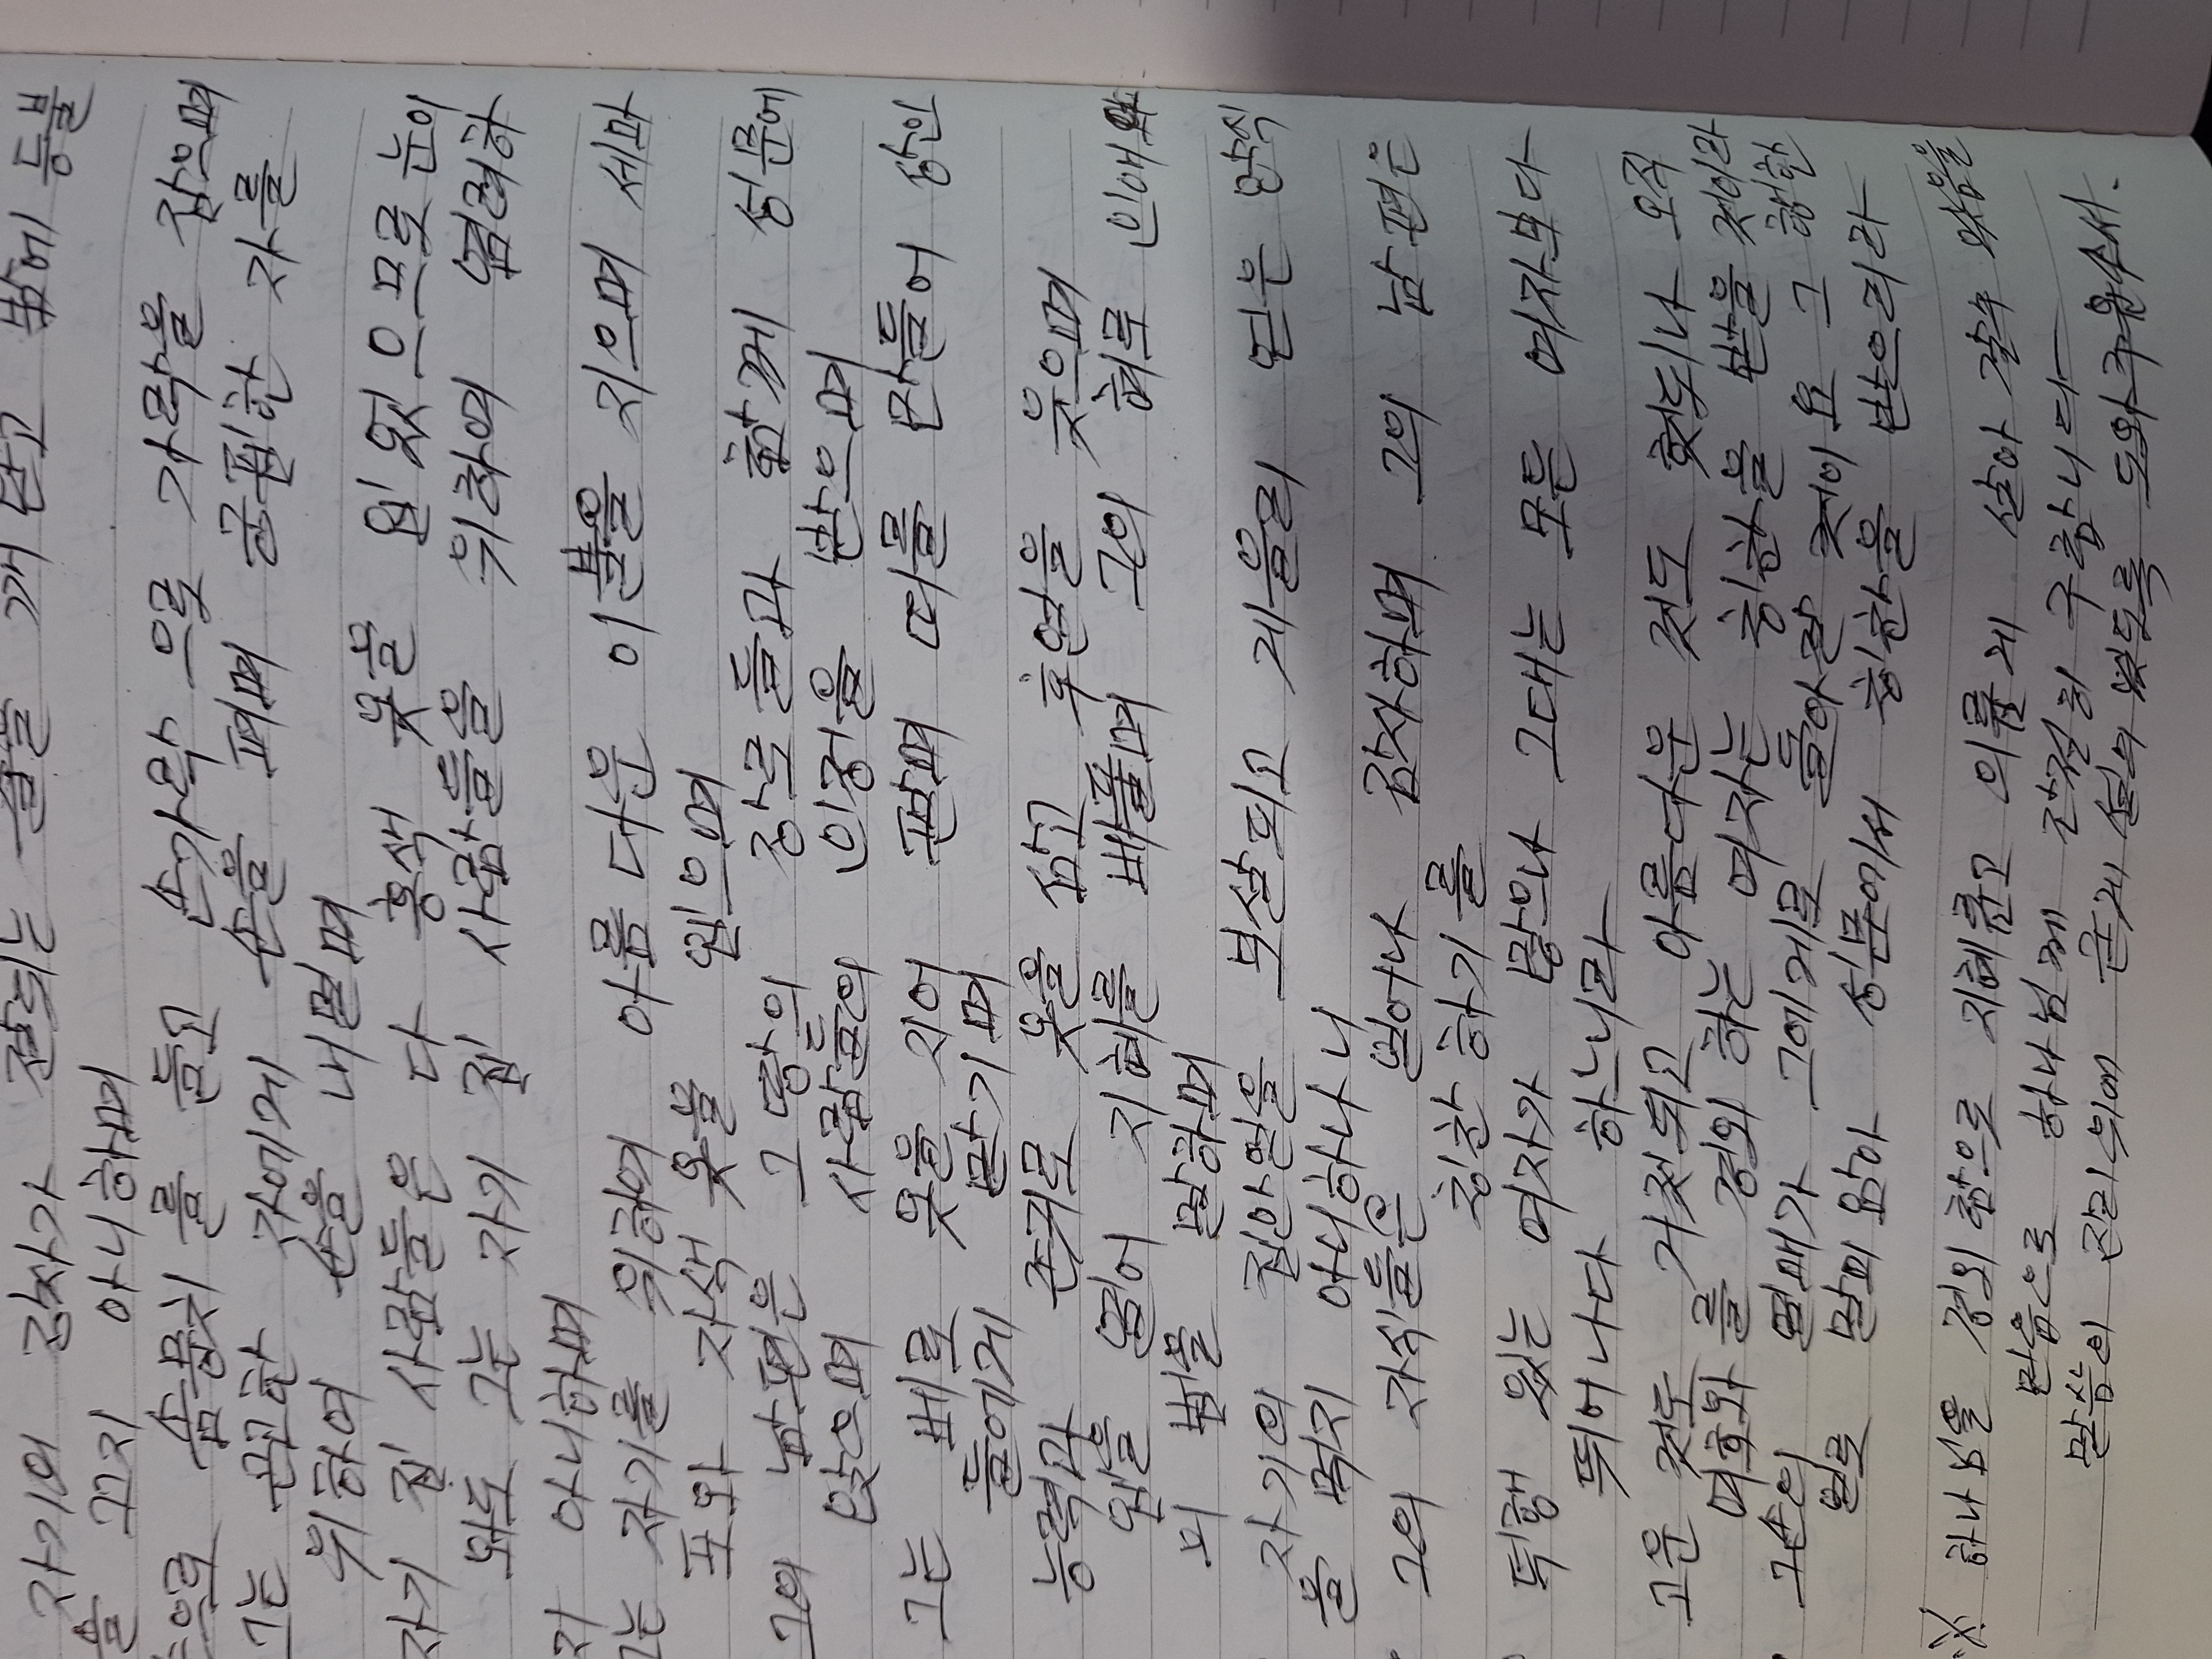 자기의 장사가 잘되는 줄을 깨 닫고 밤에 등불
을 끄지 아니하며
손으로 솜뭉치 를 들고 손가락 으로 가락을 잡으며
그는 곤고한 자에게 손을 펴며 궁핍한 자를
위하여 손을 내밀며
자기 집 사람들은 다 홍색 옷을 입었으므로 눈이
와도 그는 자기 집 사람들을 위하여 염려하
지 아니하며
그는 자기를 위하여 아름 다운 이불을 지으며 세마
포와 자색 옷을 입으며
그의 남편은 그 땅의 장로들과 함께 성문에
앉으며 사람들의 인정을 받으며
그는 베로 옷을 지어 팔며 띠를 만들어 상인
들에게 맡기며
능력과 존귀로 옷을 삼고 후일을 웃으며
입을 열어 지혜를 베풀며 그의 혀로 인애의
법을 말하며
자기의 집안일을 보살피고 게을리 얻은 양식
을 먹지 아니하나니
그의 자식들은 일어나 감사하며 그의 남편은
칭찬 하기를
덕행 있는 여자가 많으나 그대는 모든 여자보다
뛰어나다 하느니라
고운 것도 거짓되고 아름다운 것도 헛되나 오직
여호와 를 경외 하는 여자는 칭찬을 받을 것이라
그 손의 열매가 그에게로 돌아갈 것이요 그 행한
일로 말미 암아 성문에서 칭찬을 받으리라
※ 하나님을 경외 함으로 지혜롭고 의롭게 살아 갈수 있음을
믿음으로 하나님께 간절히 구합니다
말씀의 진리위에 굳게 설수 있도록 도와주옵소서.